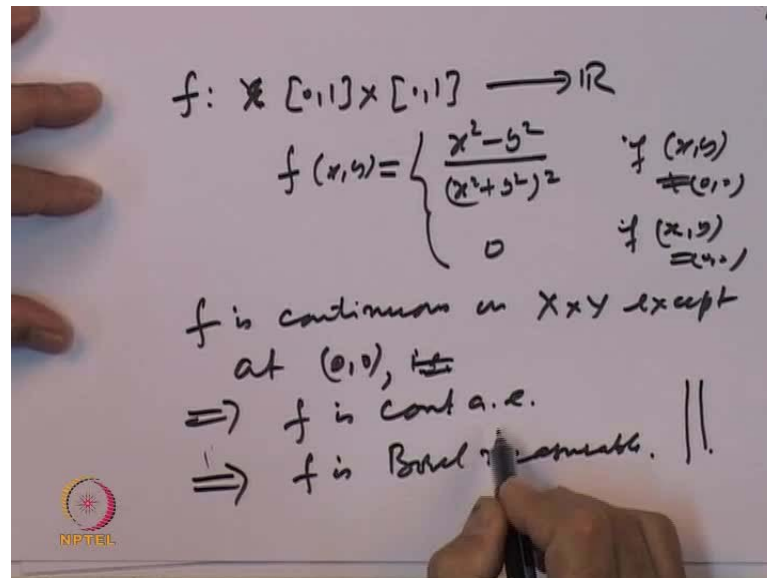 f: [0,1]×[0,1] ⟶ ℝ
f(x,y) = { (x²−y²)/(x²+y²)² if (x,y) ≠(0,0)
0 if (x,y) =(0,0)
f is continuous on X×Y except
at (0,0),
⇒ f is cont a.e.
⇒ f is Borel measurable. ||.
NPTEL